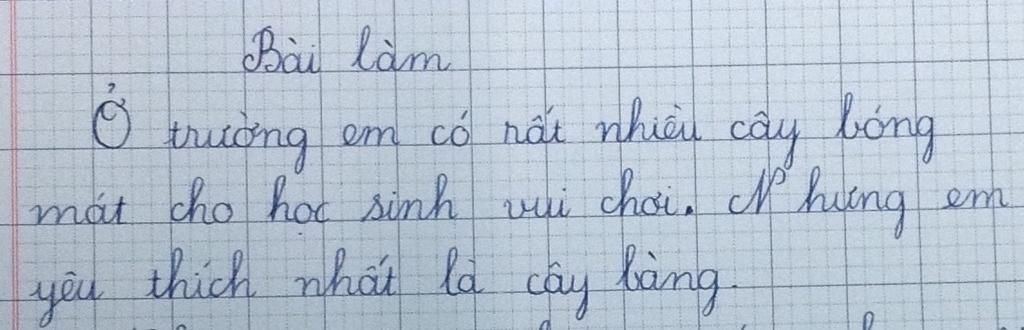 Bài làm
Ở trường em có rất nhiều cây bóng
mát cho học sinh vui chơi. Nhưng em
yêu thích nhất là cây bàng.